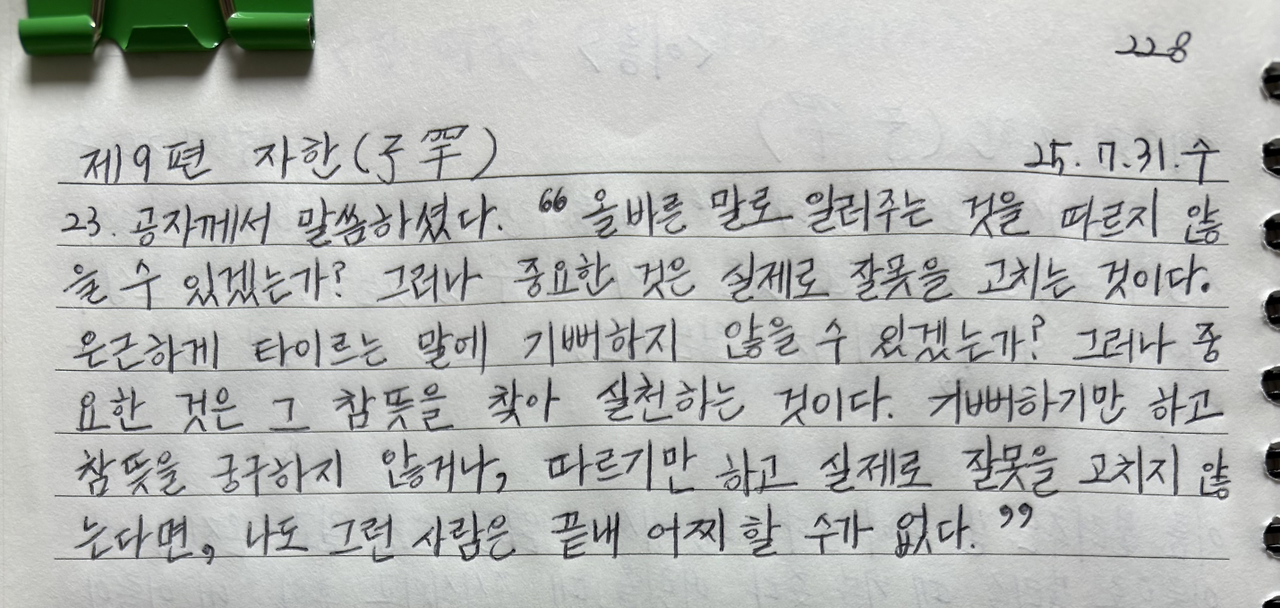 228
제9편 자한(子罕) 25.7.31.수
23. 공자께서 말씀하셨다. “올바른 말로 일러주는 것을 따르지 않
을 수 있겠는가? 그러나 중요한 것은 실제로 잘못을 고치는 것이다.
은근하게 타이르는 말에 기뻐하지 않을 수 있겠는가? 그러나 중
요한 것은 그 참뜻을 찾아 실천하는 것이다. 기뻐하기만 하고
참뜻을 궁구하지 않거나, 따르기만 하고 실제로 잘못을 고치지 않
는다면, 나도 그런 사람은 끝내 어찌 할 수가 없다.”